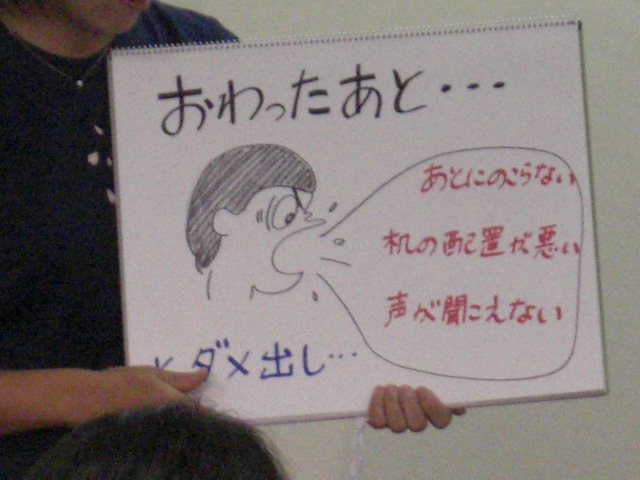 おわったあと・・・
あとにのこらない
机の配置が悪い
声が聞こえない
とダメ出し・・・